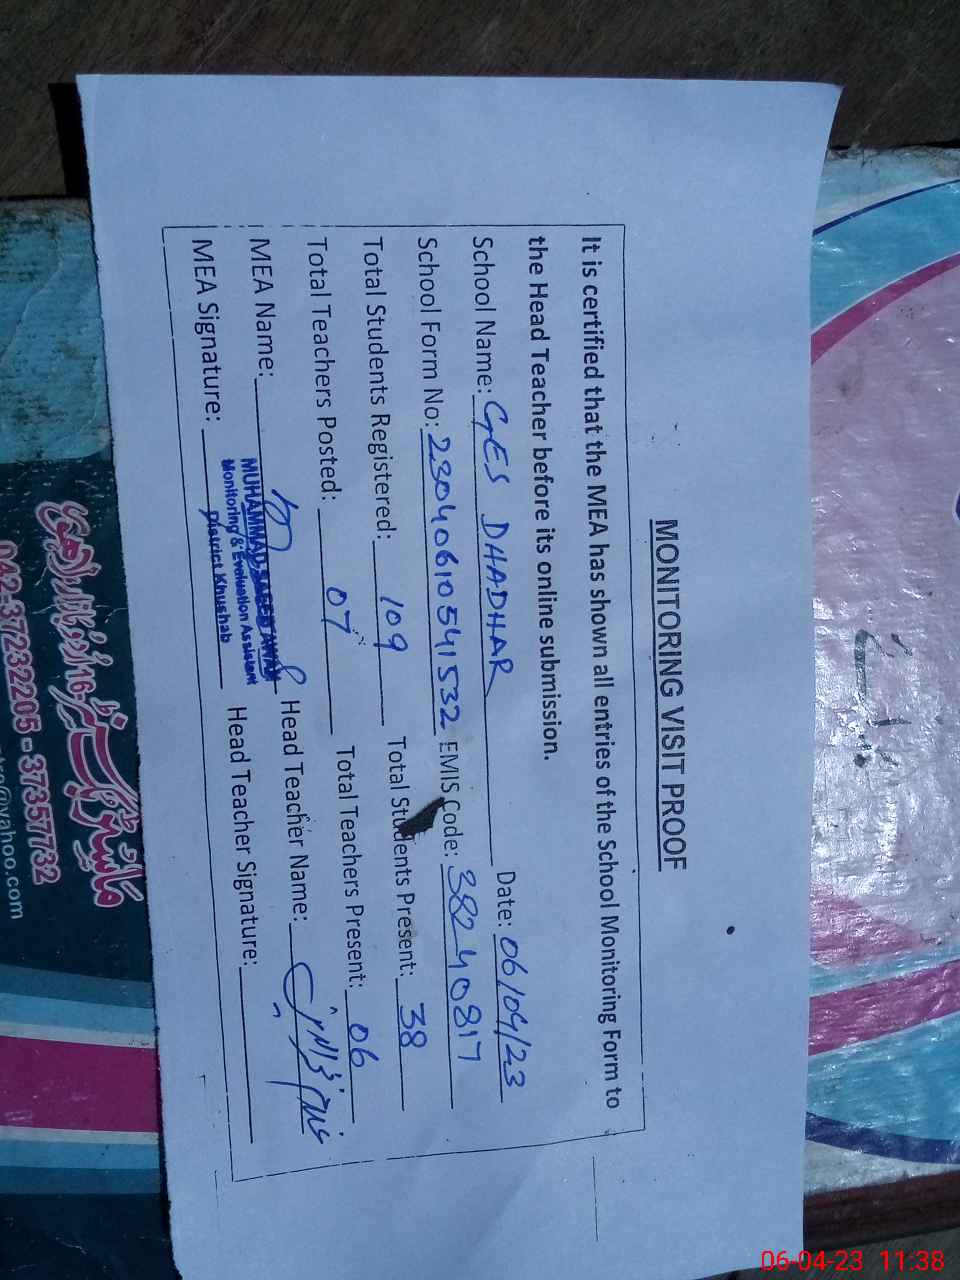 MONITORING VISIT PROOF
It is certified that the MEA has shown all entries of the School Monitoring Form to
the Head Teacher before its online submission.
School Name: GES DHADHAR Date: 06/04/23
School Form No: 230406105541532 EMIS Code: 38240817
Total Students Registered: 109 Total Students Present: 38
Total Teachers Posted: 07 Total Teachers Present: 06
MEA Name: Head Teacher Name:
MUHAMMAD AWAN
Monitoring & Evaluation Assistant
District Khushab
MEA Signature: Head Teacher Signature:
042-37232205 - 37357732
@yahoo.com
06-04-23 11:38